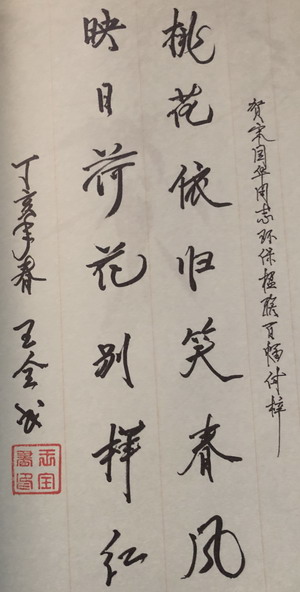 贺宋国华同志环保楹联百幅付梓
桃花依旧笑春风
映日荷花别样红
丁亥年春 王金